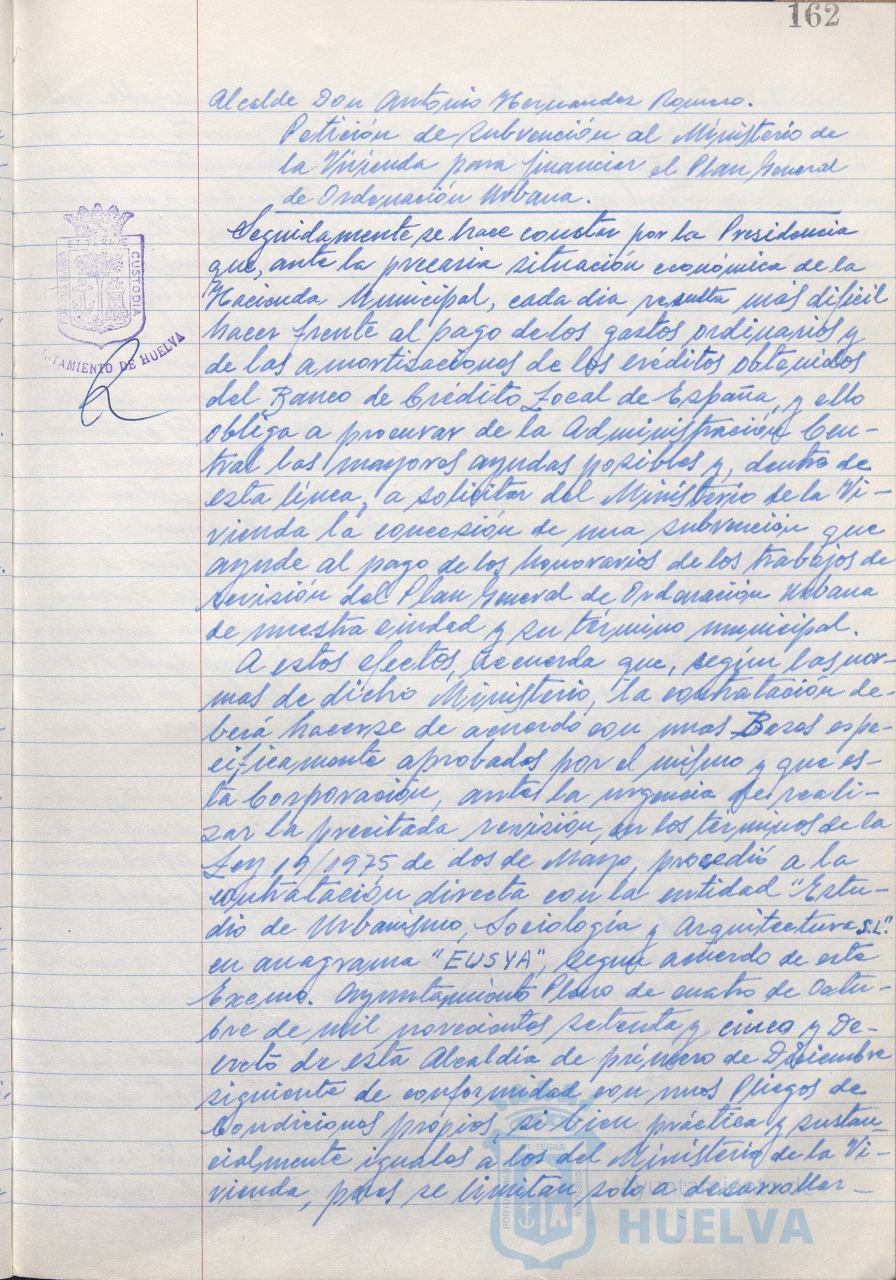 162
Alcalde Don Antonio Hernandez Romero.
Petición de subvención al Ministerio de
la Vivienda para financiar el Plan General
de Ordenación Urbana.
Seguidamente se hace constar por la Presidencia
que, ante la precaria situación económica de la
Hacienda Municipal, cada dia resulta más dificil
hacer frente al pago de los gastos ordinarios y
de las amortizaciones de los créditos obtenidos
del Banco de Crédito Local de España, y ello
obliga a procurar de la Administración Cen-
tral las mayores ayudas posibles y, dentro de
esta línea, a solicitar del Ministerio de la Vi-
vienda la concesión de una subvención que
ayude al pago de los honorarios de los trabajos de
revisión del Plan General de Ordenación Urbana
de nuestra ciudad y su término municipal.
A estos efectos, recuerda que, según las nor-
mas de dicho Ministerio, la contratación de
berá hacerse de acuerdo con unas Bases espe-
cificamente aprobadas por el mismo y que es-
ta Corporación, ante la urgencia de reali-
zar la precitada revisión, en los términos de la
Ley 19/1975 de dos de Mayo, procedió a la
contratación directa con la entidad "Estu-
dio de Urbanismo, Sociología y Arquitectura S.L."
en anagrama "EUSYA", según acuerdo de este
Excmo. Ayuntamiento Pleno de cuatro de Octu-
bre de mil novecientos setenta y cinco y De-
creto de esta Alcaldía de primero de Diciembre
siguiente de conformidad con unos Pliegos de
Condiciones propios, si bien práctica y sustan
cialmente iguales a los del Ministerio de la Vi-
vienda, pues se limitan solo a desarrollar-
PORTUS MARIS
ET TERRÆ
CUSTODIA
AYUNTAMIENTO DE HUELVA
Ayuntamiento de
HUELVA